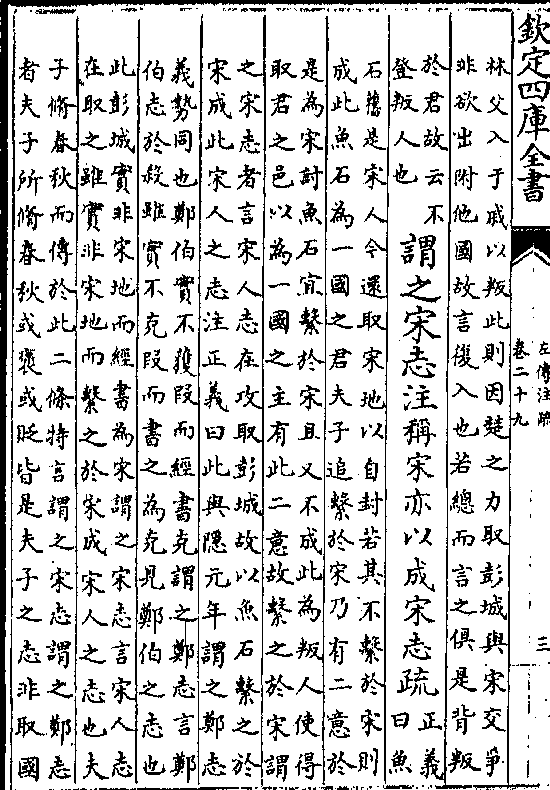 欽定四庫全書
左傳注疏
卷二十九
三
林父入于戚以叛此則因楚之力取彭城與宋交爭
非欲出附他國故言復入也若總而言之俱是背叛
於君故云不
登叛人也
謂之宋志注稱宋亦以成宋志疏
正義
曰魚
石舊是宋人今還取宋地以自封若其不繫於宋則
成此魚石為一國之君夫子追繫於宋乃有二意於
是為宋討魚石宜繫於宋且又不成此為叛人使得
取君之邑以為一國之主有此二意故繫之於宋謂
之宋志者言宋人志在攻取彭城故以魚石繫之於
宋成此宋人之志注正義曰此與隱元年謂之鄭志
義勢同也鄭伯實不獲段而經書克謂之鄭志言鄭
伯志於殺雖實不克段而書之為克見鄭伯之志也
此彭城實非宋地而經書為宋謂之宋志言宋人志
在取之雖實非宋地而繫之於宋成宋人之志也夫
子脩春秋而傳於此二條特言謂之宋志謂之鄭志
者夫子所脩春秋或褒或貶皆是夫子之志非取國